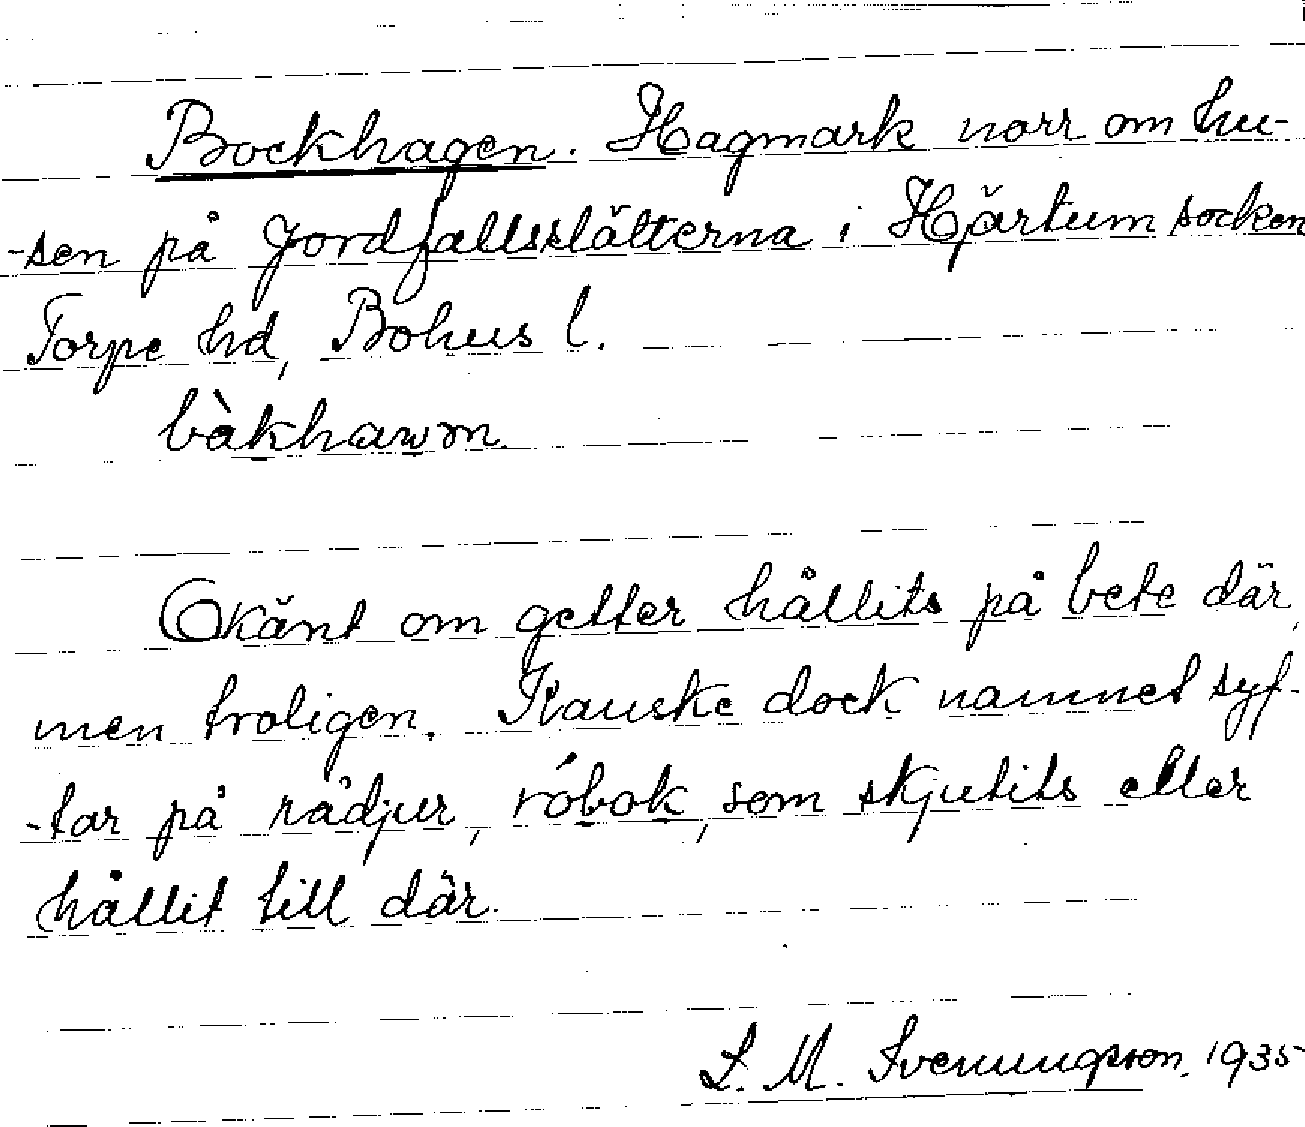 Bockhagen. Hagmark norr om hu-
-sen på Jordfallsslätterna i Hjärtum socken
Torpe hd, Bohus l.
bàkhawm.
Okänt om getter hållits på bete där,
men troligen. Kanske dock namnet syf-
-tar på rådjur, róbok, som skjutits eller
hållit till där.
L. M. Svenungsson. 1935